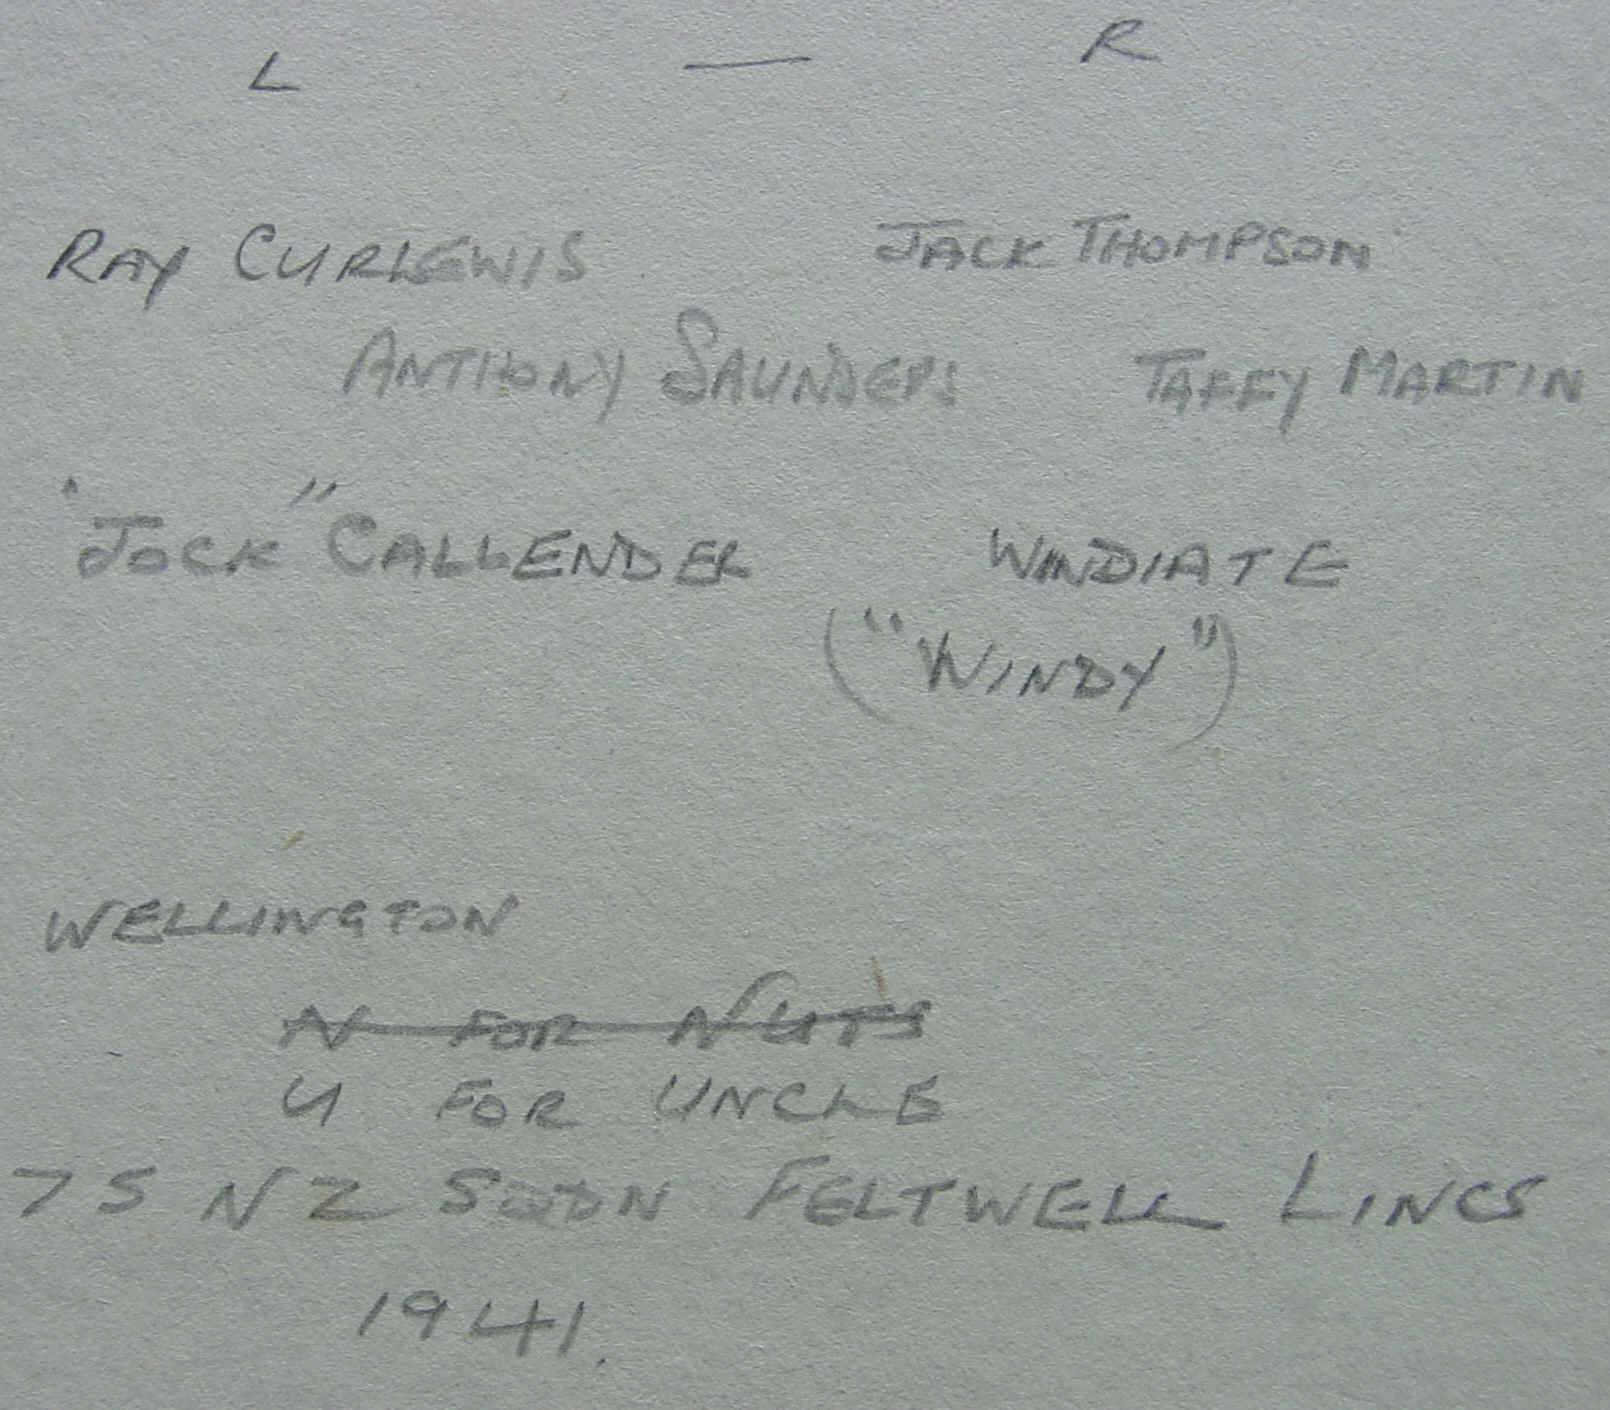 L — R
RAY CURLEWIS JACK THOMPSON
ANTHONY SAUNDERS TAFFY MARTIN
"JOCK" CALLENDER WINDIATE
("WINDY")
WELLINGTON
N FOR NUTS
U FOR UNCLE
75 NZ SQDN FELTWELL LINCS
1941.